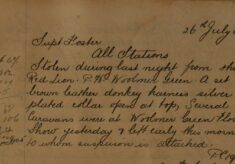 26th July
Supt Foster
All Stations
Stolen during last night from the
Red Lion. P.H. Woolmer Green A set
brown leather donkey harness silver
plated collar open at top, Several
Caravans were at Woolmer Green
Show yesterday & left early this morn
to whom suspicion is attached.